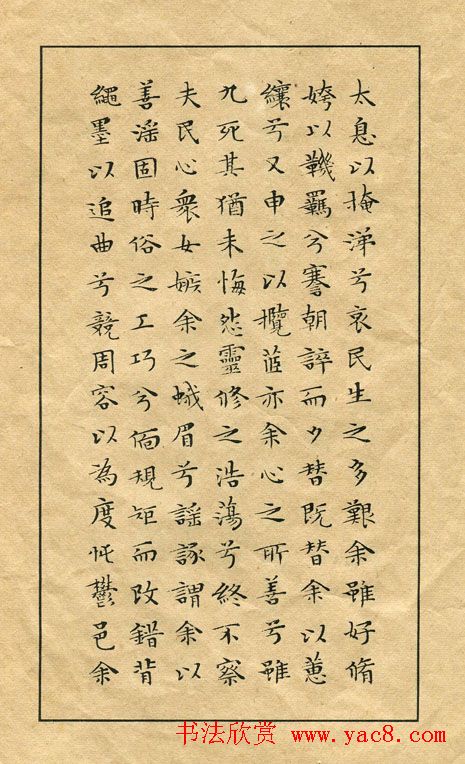 太息以掩涕兮哀民生之多艱余雖好脩
姱以鞿羈兮謇朝誶而夕替既替余以蕙
纕兮又申之以攬茝亦余心之所善兮雖
九死其猶未悔怨靈修之浩蕩兮終不察
夫民心衆女嫉余之蛾眉兮謠諑謂余以
善淫固時俗之工巧兮偭規矩而改錯背
繩墨以追曲兮競周容以為度忳鬱邑余
书法欣赏 www.yac8.com